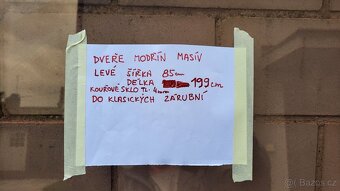 DVEŘE MODŘÍN MASÍV
LEVÉ ŠÍŘKA 85cm
DÉLKA 199cm
KOUŘOVÉ SKLO TL. 4mm
DO KLASICKÝCH ZÁRUBNÍ
Bazos.cz